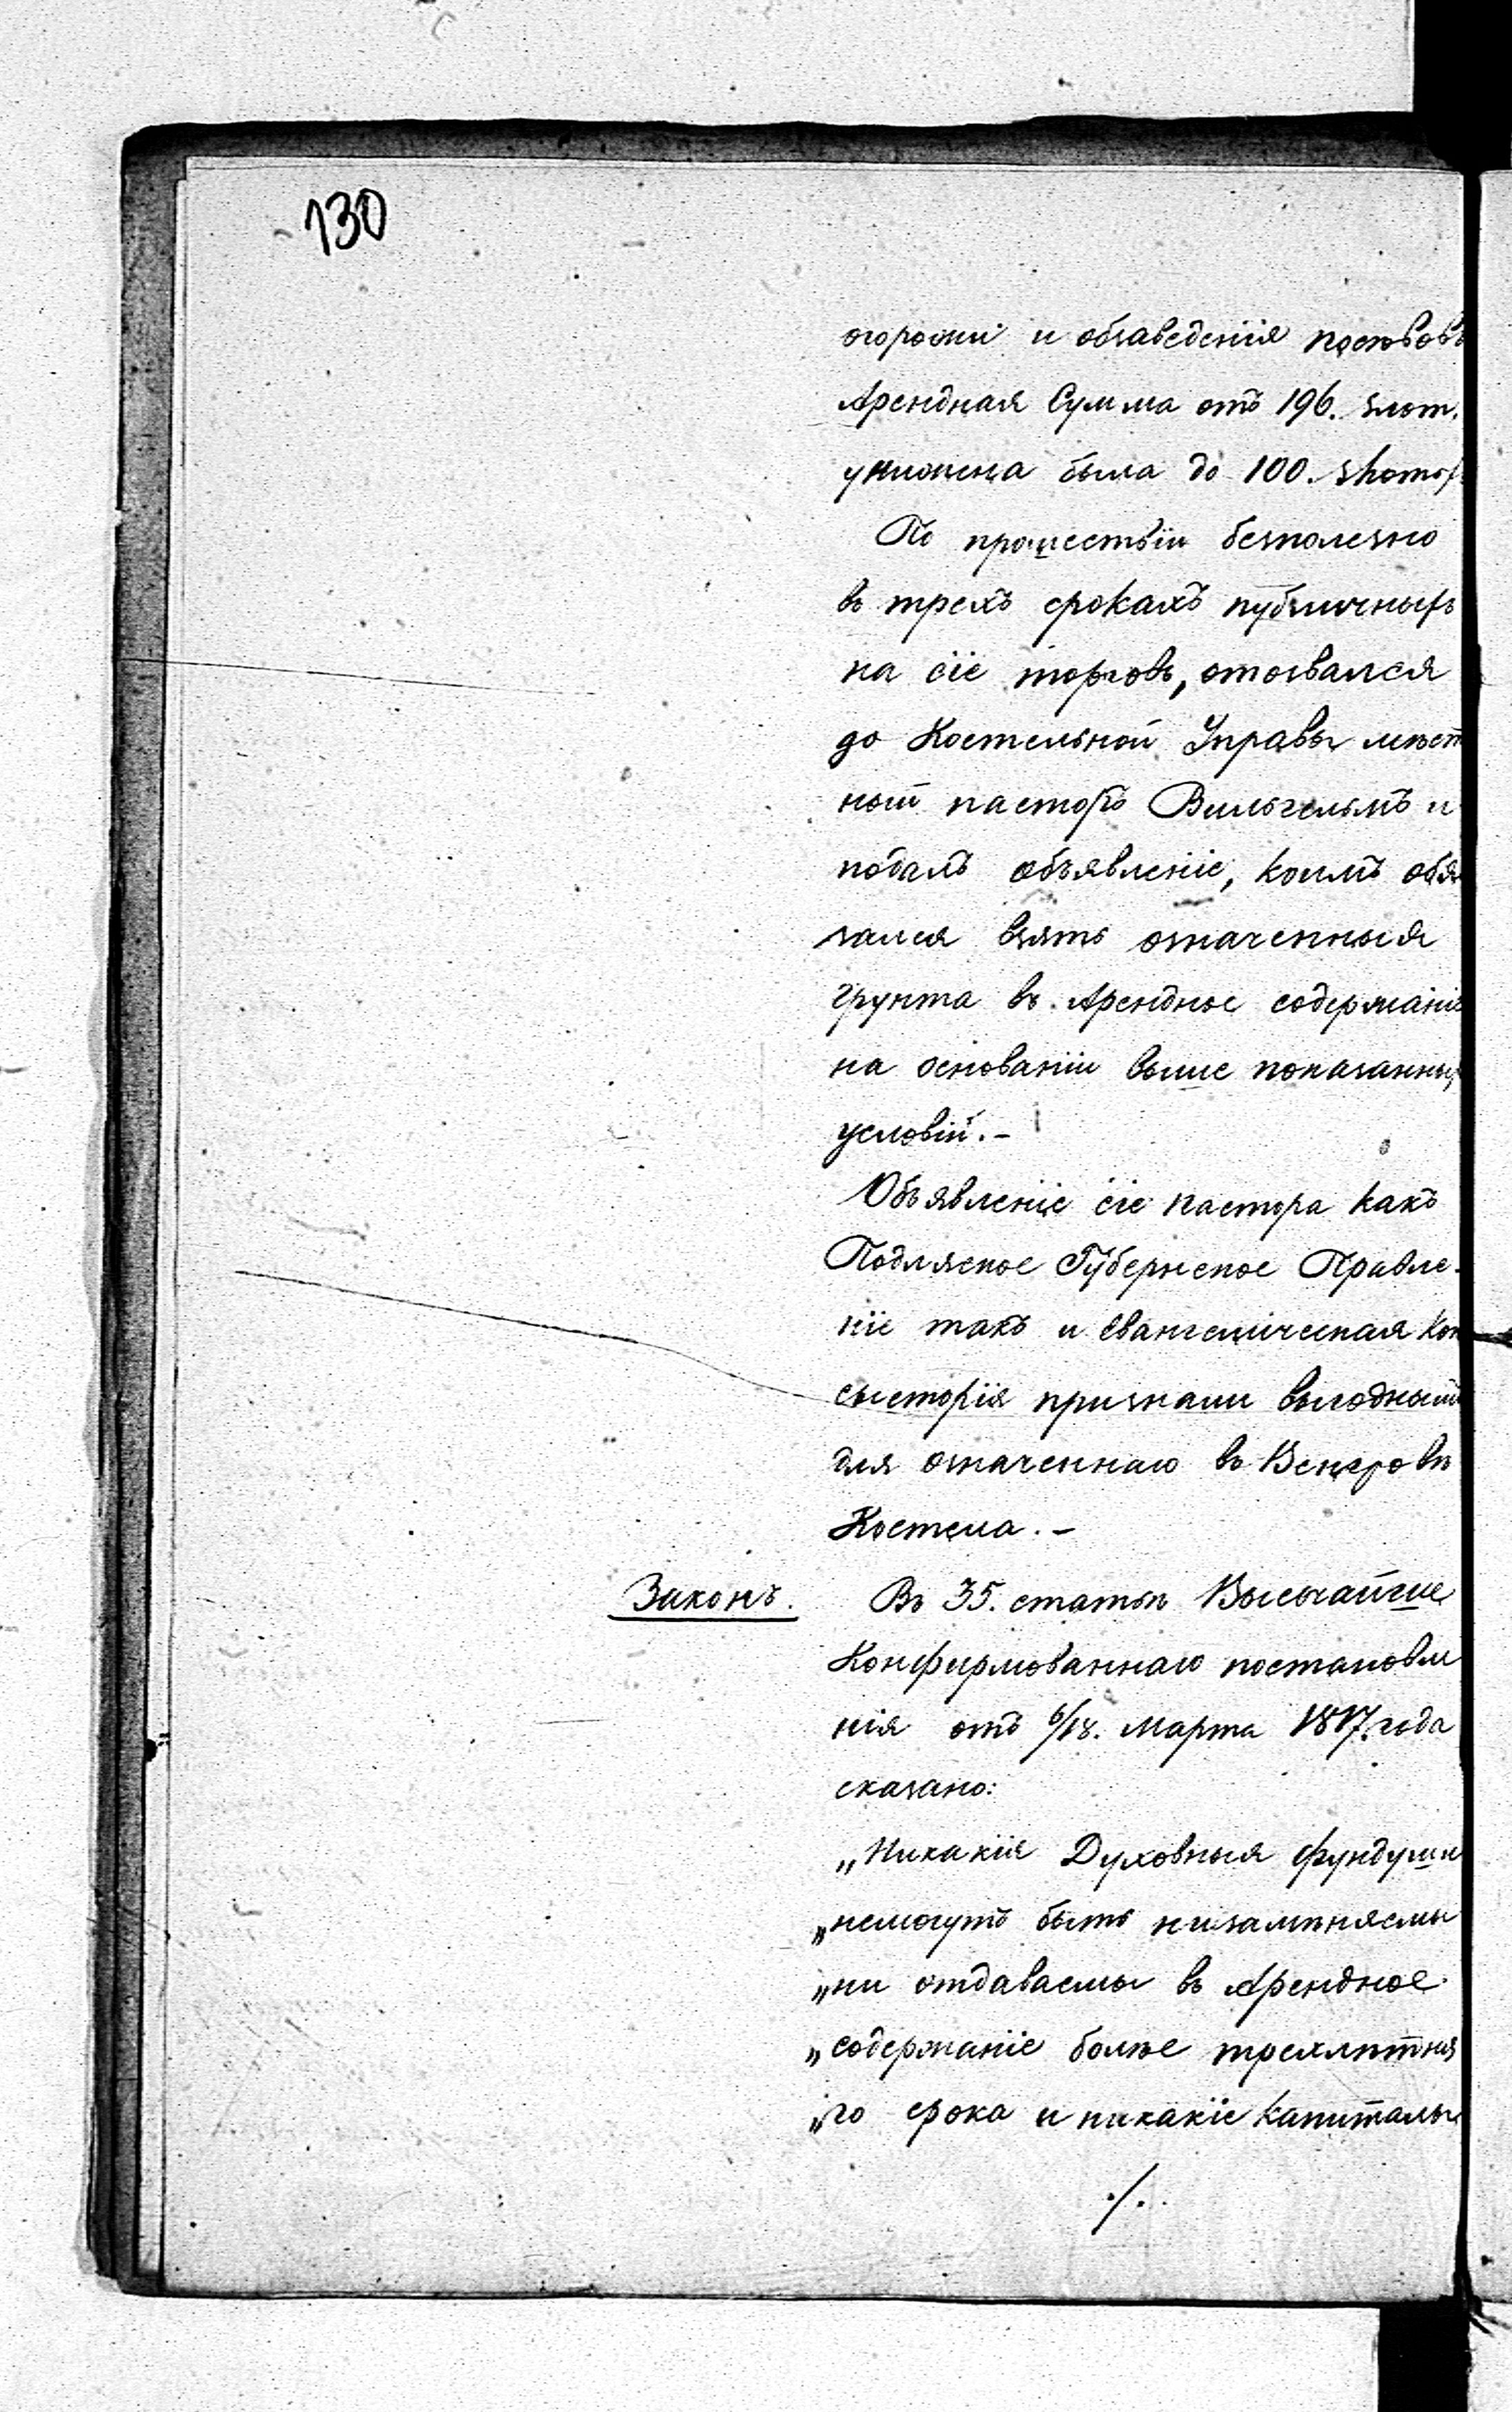 130
огорожи и обзаведенія посѣвовъ
Арендная Сумма отъ 196. злот.
унижена была до 100. злот
По прошествіи безполезно
въ трехъ срокахъ публичныхъ
на сіе торговъ, отозвался
до Костельной Управы мѣст
ный пасторъ Вильгельмъ и
подалъ объявленіе, коимъ обя
зался взять означенныя
грунта въ Арендное содержаніе
на основаніи выше показанных
условій.-
Объявленіе сіе пастора какъ
Подляское Губернское Правле-
ніе такъ и Евангелическая Кон
систорія признали выгоднымъ
для означеннаго въ Венгровѣ
Костела.-
Законъ.
Въ 35. статьѣ Высочайше
Конфирмованнаго постановле
нія отъ 6/18. Марта 1817. года
сказано:
„Никакія Духовныя фундуши
„немогутъ быть ни замѣняемы
„ни отдаваемы въ Арендное
„содержаніе болѣе трехлѣтня
„го срока и никакіе Капиталы
./.